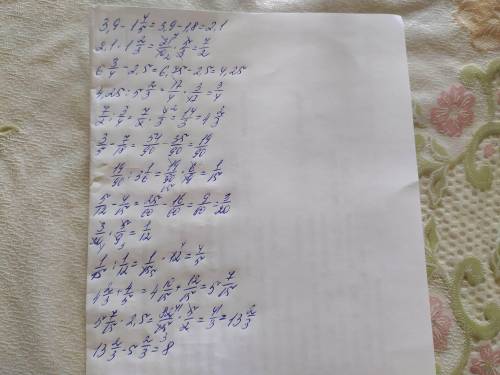 3,9 - 1 4/5 = 3,9 - 1,8 = 2,1
2,1 · 1 2/3 = 21/10 · 5/3 = 7/2
6 3/4 - 2,5 = 6,75 - 2,5 = 4,25
4,25 : 5 2/3 = 17/4 · 3/17 = 3/4
7/2 : 3/4 = 7/2 · 4/3 = 14/3 = 4 2/3
3/5 - 7/18 = 54/90 - 35/90 = 19/90
19/90 : 3 1/6 = 19/90 · 6/19 = 1/15
5/12 - 4/15 = 25/60 - 16/60 = 9/60 = 3/20
3/20 · 5/9 = 1/12
1/15 : 1/12 = 1/15 · 12 = 4/5
4 2/3 + 4/5 = 4 10/15 + 12/15 = 5 7/15
5 7/15 · 2,5 = 82/15 · 5/2 = 41/3 = 13 2/3
13 2/3 - 5 2/3 = 8